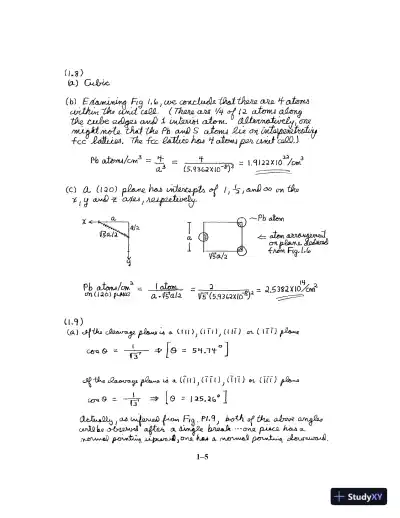 (1.8)
(a) Cubic
(b) Examining Fig 1.6, we conclude that there are 4 atoms
within the unit cell. (There are 1/4 of 12 atoms along
the cube edges and 1 interior atom. Alternatively, one
might note that the Pb and S atoms lie on interpenetrating
fcc lattices. The fcc lattice has 4 atoms per unit cell.)
Pb atoms/cm³ = 4/a³ = 4/(5.9362×10⁻⁸)³ = 1.9122×10²²/cm³
(c) A (120) plane has intercepts of 1, 1/2, and ∞ on the
x, y and z axes, respectively.
x a a/2 √5a/2 y
a √5a/2
Pb atom
← atom arrangement
on plane deduced
from Fig 1.6
Pb atoms/cm² = 1 atom/a·√5a/2 = 2/√5(5.9362×10⁻⁸)² = 2.5382×10¹⁴/cm²
on (120) plane
(1.9)
(a) If the cleavage plane is a (111), (1̄1̄1), (11̄1̄) or (1̄11̄) plane
cosθ = 1/√3 ⇒ [θ = 54.74°]
If the cleavage plane is a (1̄11), (1̄1̄1̄), (1̄11) or (11̄1) plane
cosθ = -1/√3 ⇒ [θ = 125.26°]
Actually, as inferred from Fig. P1.9, both of the above angles
will be observed after a single break---one piece has a
normal pointing upward, one has a normal pointing downward.
1-5
+ StudyXY